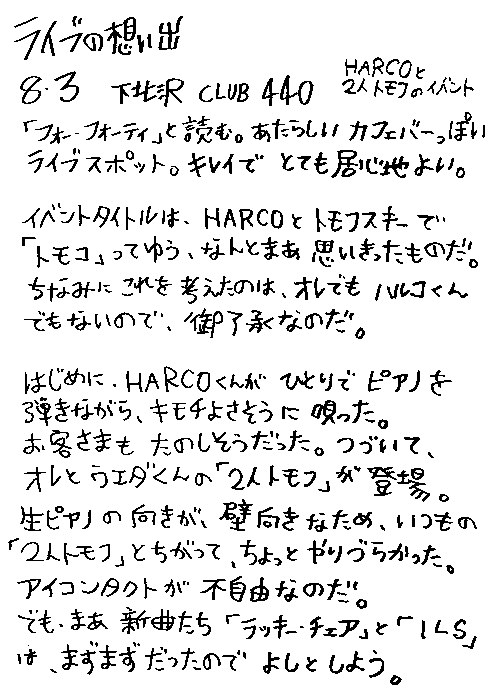 ライブの想い出
8.3 下北沢 CLUB 440 HARCOと
2人トモフのイベント
「フォー・フォーティ」と読む。あたらしい カフェバーっぽい
ライブスポット。キレイで とても居心地よい。
イベントタイトルは、HARCOとトモフスキーで
「トモコ」ってゆう、なんとまあ 思いきったものだ。
ちなみに これを 考えたのは、オレでも ハルコくん
でもないので、御了承なのだ。
はじめに、HARCOくんが ひとりで ピアノを
弾きながら、キモチよさそうに 唄った。
お客さまも たのしそうだった。つづいて、
オレと ウエダくんの「2人トモフ」が 登場。
生ピアノの 向きが、壁向きなため、いつもの
「2人トモフ」とちがって、ちょっと やりづらかった。
アイコンタクトが 不自由なのだ。
でも、まあ 新曲たち「ラッキー・チェア」と「ILS」
は、まずまずだったので よしとしよう。